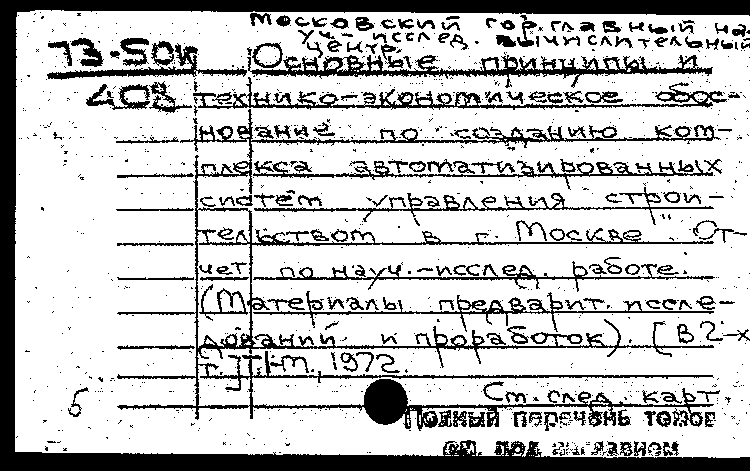 Московский гор. главный на-
уч.-исслед. вычислительный
центр.
73-50к Основные принципы и
408 технико-экономическое обос-
нование по созданию ком-
плекса автоматизированных
систем управления строи-
тельством в г. Москве" От-
чет по науч.-исслед. работе.
(Материалы предварит. иссле-
дований и проработок). [В 2-х
т.] Т.1-
М., 1972.
5 См. след. карт.
Полный перечень томов
см. под заглавием